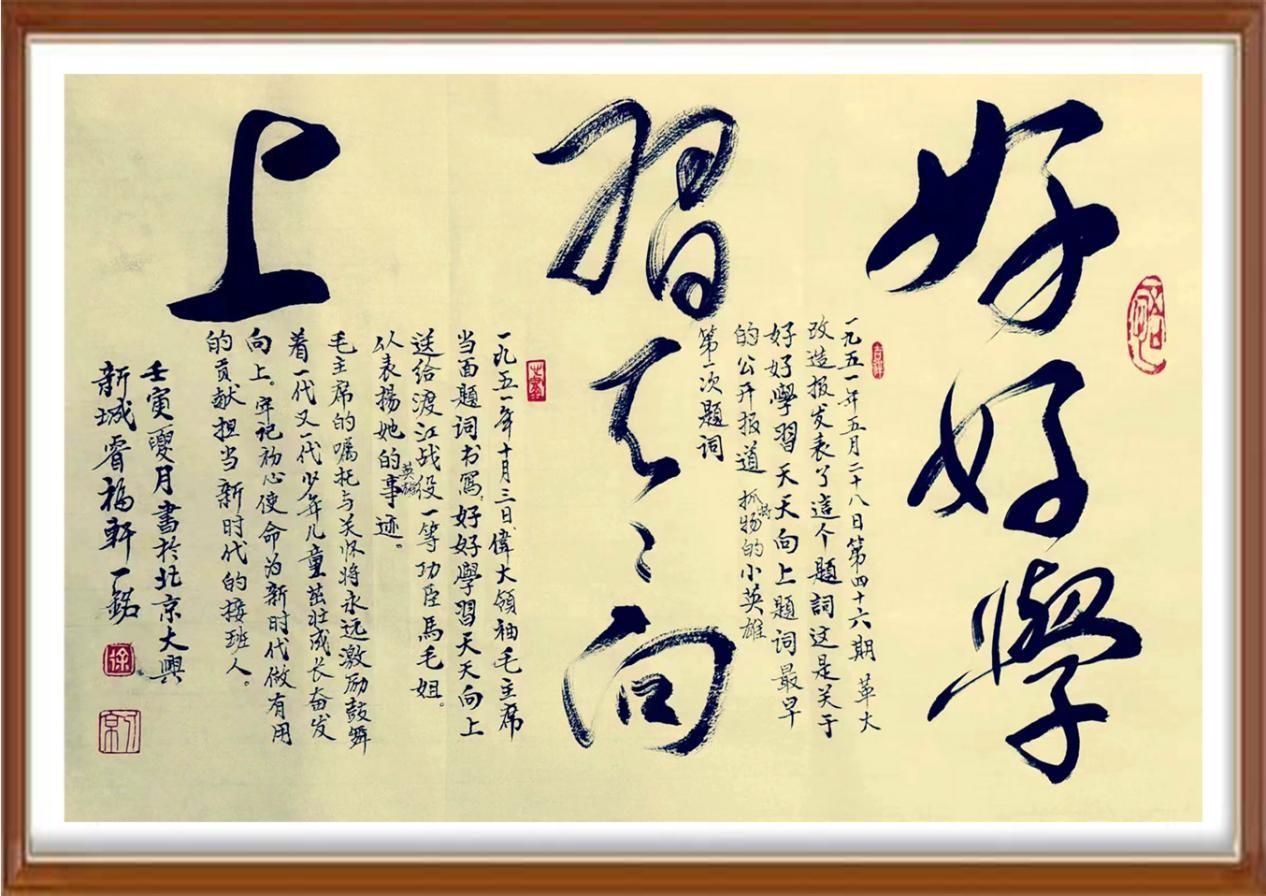 好好學
一九五一年五月二十八日第四十六期革大
改造报发表了這个题詞这是关于
好好學習天天向上题词最早
的公开报道 抓特物的小英雄
第一次题词
習天〻向
一九五一年十月三日偉大领袖毛主席
当面题词书写,好好學習天天向上
送给渡江战役一等功臣馬毛姐。
以表揚她的英雄事迹。
毛主席的嘱托与关怀将永远激励鼓舞
着一代又一代少年儿童茁壮成长奋发
向上。牢记初心使命为新时代做有用
的贡献担当新时代的接班人。
上
壬寅夏月書於北京大興
新城睿福軒一銘
徐